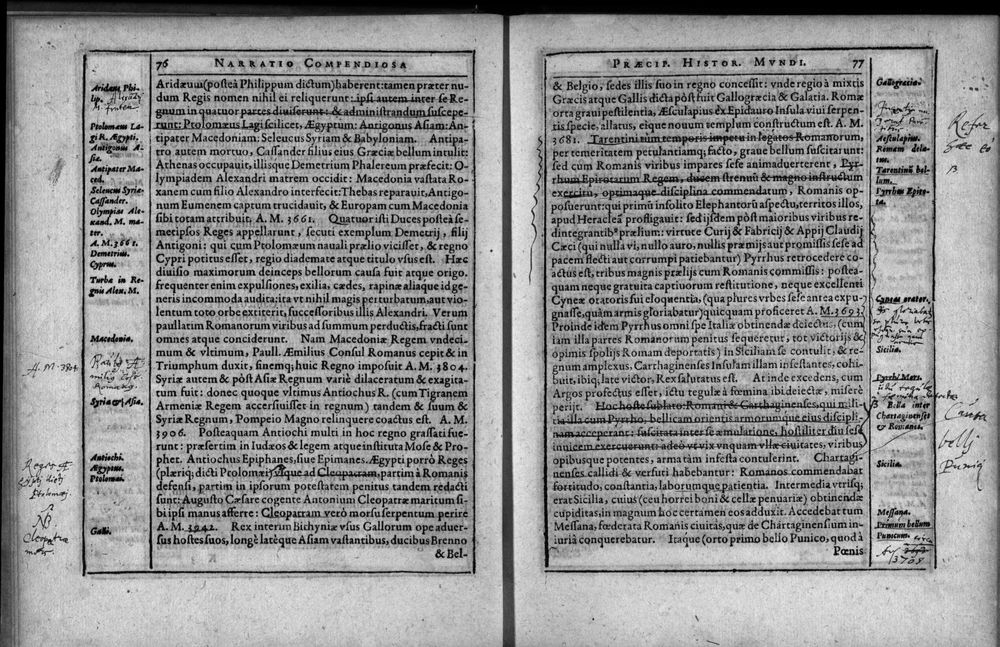 76 NARRATIO COMPENDIOSA
Aridæuu(posteà Philippum dictum)haberent:tamen præter nu-
dum Regis nomen nihil ei reliquerunt: ipsi autem inter se Re-
gnum in quatuor partes diuiserunt: & administrandum suscepe-
runt: Ptolomæus Lagi scilicet, Ægyptum: Antigonus Asiam: An-
tipater Macedoniam: Seleucus Syriam & Babyloniam. Antipa-
tro autem mortuo, Cassander filius eius Græciæ bellum intulit:
Athenas occupauit, illisque Demetrium Phalereum præfecit: O-
lympiadem Alexandri matrem occidit: Macedonia vastata Ro-
xanem cum filio Alexandro interfecit: Thebas reparauit. Antigo-
num Eumenem captum trucidauit, & Europam cum Macedonia
sibi totam attribuit. A. M. 3661. Quatuor isti Duces posteà se-
metipsos Reges appellarunt, secuti exemplum Demetrij, filij
Antigoni: qui cum Ptolomæum nauali prælio vicisset, & regno
Cypri potitus esset, regio diademate atque titulo vsus est. Hæc
diuisio maximorum deinceps bellorum causa fuit atque origo.
frequenter enim expulsiones, exilia, cædes, rapinæ aliaque id ge-
neris incommoda audita: ita vt nihil magis perturbatum, aut vio-
lentum toto orbe extiterit, successoribus illis Alexandri. Verum
paullatim Romanorum viribus ad summum perductis, fracti sunt
omnes atque conciderunt. Nam Macedoniæ Regem vndeci-
mum & vltimum, Paull. Æmilius Consul Romanus cepit & in
Triumphum duxit, finemq; huic Regno imposuit A. M. 3804.
Syriæ autem & pòst Asiæ Regnum variè dilaceratum & exagita-
tum fuit: donec quoque vltimus Antiochus R. (cum Tigranem
Armeniæ Regem accersiuisset in regnum) tandem & suum &
Syriæ Regnum, Pompeio Magno relinquere coactus est. A. M.
3906. Posteaquam Antiochi multi in hoc regno grassati fue-
runt: præsertim in Iudæos & legem atque instituta Mose & Pro-
phet. Antiochus Epiphanes, siue Epimanes. Ægypti porrò Reges
(plæriq; dicti Ptolomæi) vsque ad Cleopatram, partim à Romanis
defensi, partim in ipsorum potestatem penitus tandem redacti
sunt: Augusto Cæsare cogente Antonium Cleopatræ maritum si-
bi ipsi manus afferre: Cleopatram verò morsu serpentum perire
A. M. 3942. Rex interim Bichyniæ vsus Gallorum ope aduer-
sus hostes suos, longè latèque Asiam vastantibus, ducibus Brenno
& Bel-
Aridæus Phi-
lip.
Ptolomæus La-
gi R. Ægypti.
Antigonus A-
siæ.
Antipater Ma-
ced.
Seleucus Syriæ
Cassander.
Olympias Ale-
xand. M. ma-
ter.
A. M. 3661.
Demetrius.
Cyprus.
Turba in Re-
gnis Alex. M.
Macedonia.
A. M. 3804.
Syria & Asia.
Antiochi.
Ægyptus.
Ptolomæi.
NB
Cleopatræ
mors.
Galli.
PRÆCIP. HISTOR. MVNDI. 77
& Belgio, sedes illis suo in regno concessit: vnde regio à mixtis
Græcis atque Gallis dicta pòst fuit Gallogræcia & Galatia. Romæ
orta graui pestilentia, Æsculapius ex Epidauro Insula viui serpen-
tis specie, allatus, eique nouum templum constructum est. A. M.
3681. Tarentini eum temporis impetu in legatos Romanorum,
per temeritatem petulantiamq; facto, graue bellum suscitarunt:
sed cum Romanis viribus impares sese animaduerterent, Pyr-
rhum Epirotarum Regem, ducem strenuū & magno instructum
exercitu, optimaque disciplina commendatum, Romanis op-
posuerunt: qui primū insolito Elephantorū aspectu, territos illos,
apud Heracleā profligauit: sed ijsdem pòst maioribus viribus re-
dintegrantibꝰ prælium: virtute Curij & Fabricij & Appij Claudij
Cæci (qui nulla vi, nullo auro, nullis præmijs aut promissis sese ad
pacem flecti aut corrumpi patiebantur) Pyrrhus retrocedere co-
actus est, tribus magnis prælijs cum Romanis commissis: postea-
quam neque gratuita captiuorum restitutione, neque excellenti
Cyneæ oratoris sui eloquentia, (qua plures vrbes sese antea expu-
gnasse, quàm armis gloriabatur) quicquam proficeret A. M. 3693.
Proinde idem Pyrrhus omni spe Italiæ obtinendæ deiectus, (cum
iam illa partes Romanorum penitus sequeretur, tot victorijs &
opimis spolijs Romam deportatis) in Siciliam se contulit, & re-
gnum amplexus. Carthaginenses Insulam illam infestantes, cohi-
buit, ibiq; late victor, Rex salutatus est. At inde excedens, cum
Argos profectus esset, ictu tegulæ à fœmina ibi deiectæ, miserè
perijt. Hoc hoste sublato: Romani & Carthaginenses, qui mili-
tia illa cum Pyrrho, bellicam orientis armorumque eius discipli-
nam acceperant: suscitata inter se æmulatione, hostiliter diu sese
inuicem exercuerunt: adeò vt vix vnquam vllæ ciuitates, viribus
opibusque potentes, armatæ tam infesta contulerint. Chartagi-
nenses callidi & versuti habebantur: Romanos commendabat
fortitudo, constantia, laborumque patientia. Intermedia vtrisq;
erat Sicilia, cuius (ceu horrei boni & cellæ penuariæ) obtinendæ
cupiditas, in magnum hoc certamen eos adduxit. Accedebat tum
Messana, fœderata Romanis ciuitas, quæ de Chartaginensum in-
iuriâ conquerebatur. Itaque (orto primo bello Punico, quod à
Pœnis
Gallogræcia.
Æsculapius
Romam dela-
tus.
Tarentinū bel-
lum.
Pyrrhus Epiro-
ta.
Cyneas orator.
Sicilia.
Pyrrhi Mors.
Bella inter
Chartaginenses
& Romanos.
Sicilia.
Messana.
Primum bellum
Punicum.